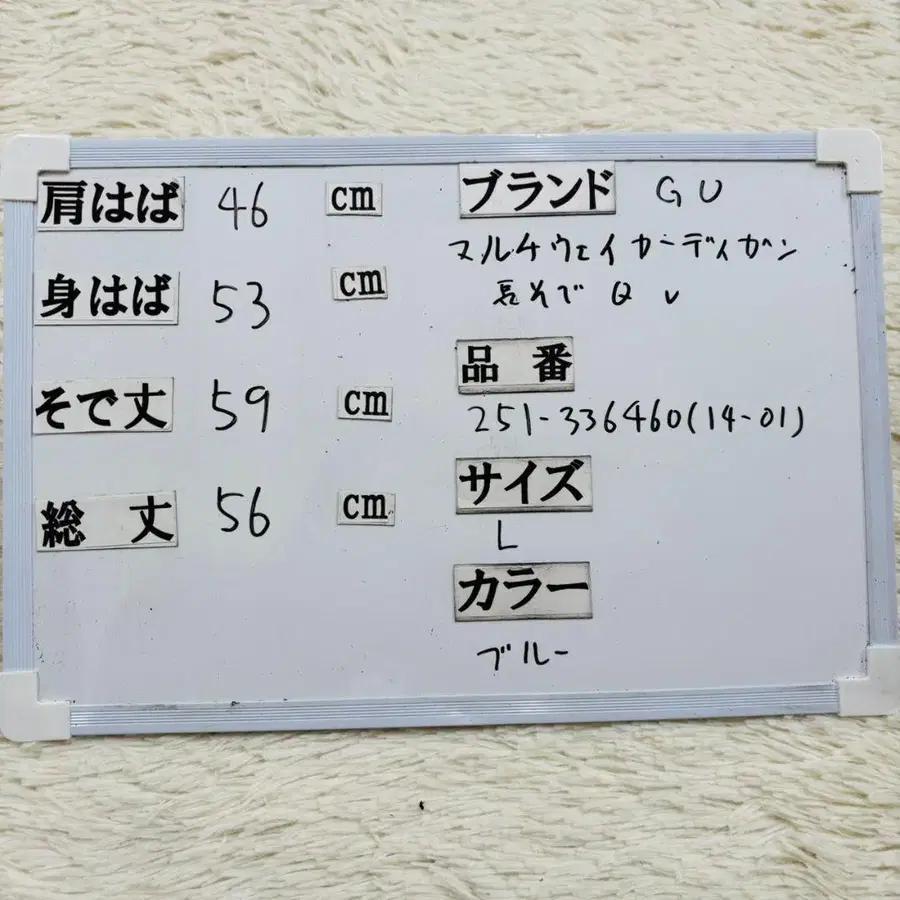 肩はば 46 cm
身はば 53 cm
そで丈 59 cm
総 丈 56 cm
ブランド GU
マルチウェイカーディガン
長そで Q v
品 番
251-336460(14-01)
サイズ
L
カラー
ブルー